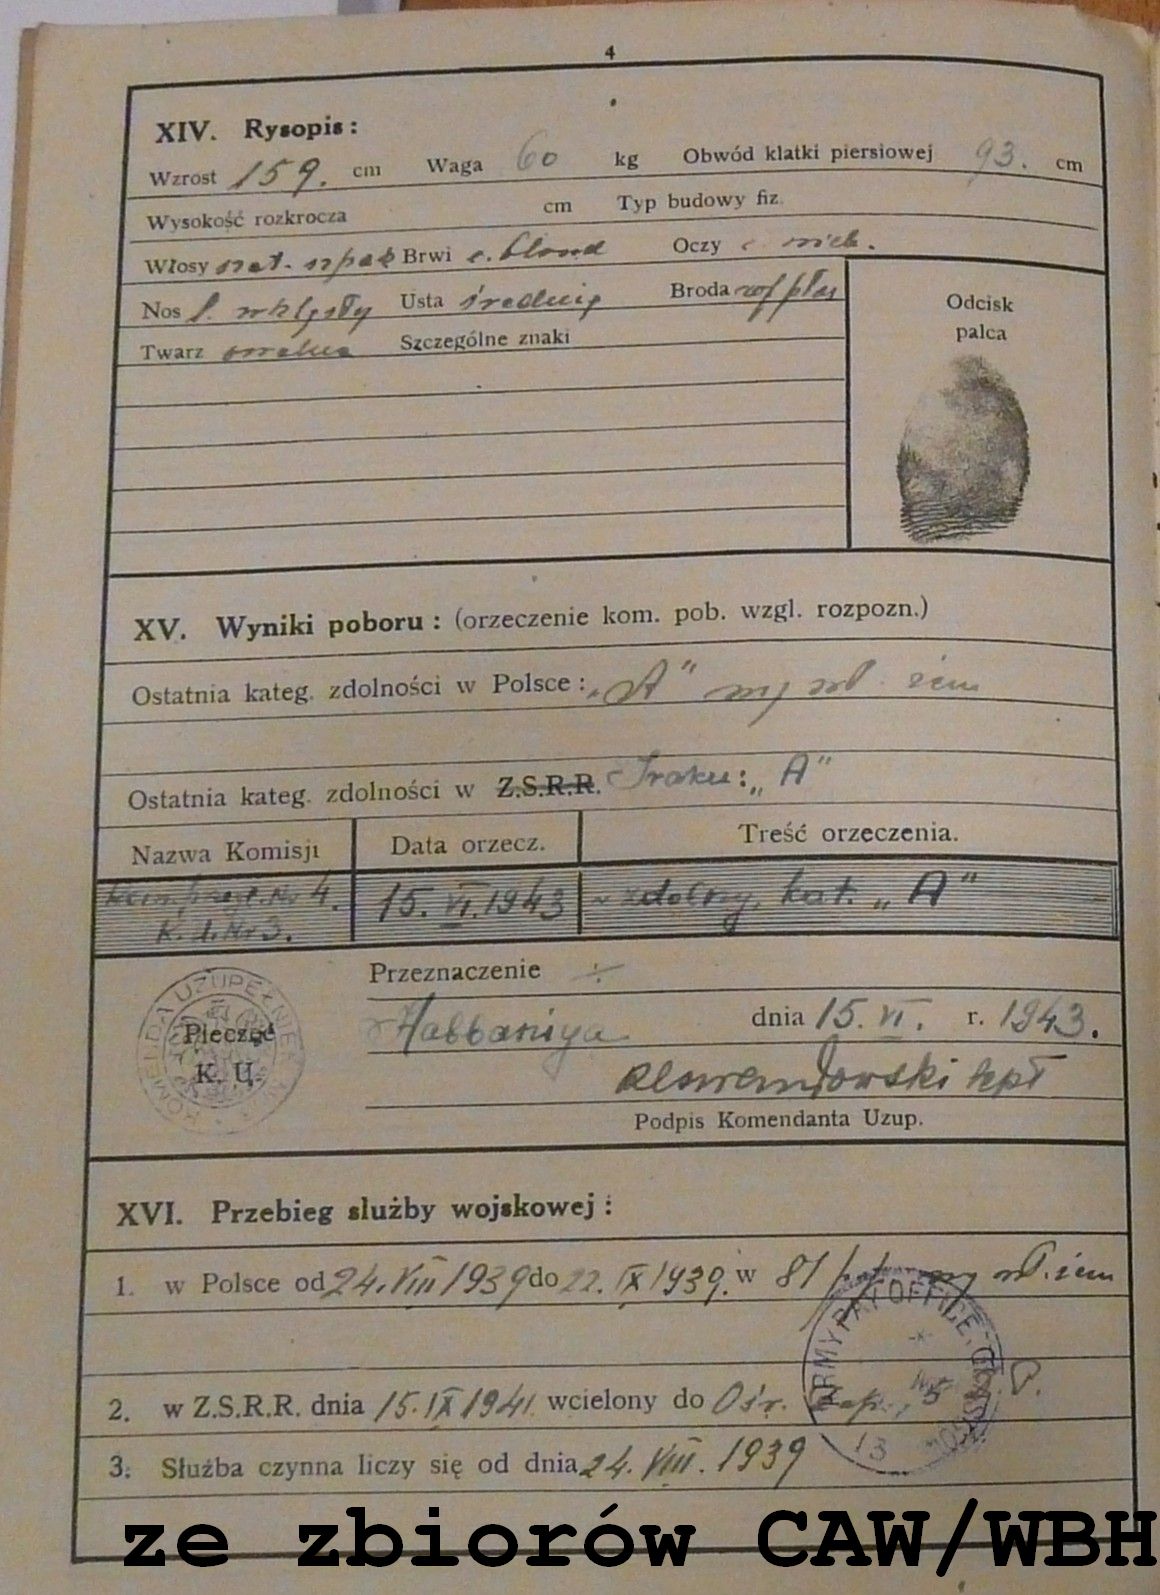 4
XIV. Rysopis:
Wzrost 159. cm Waga 60 kg Obwód klatki piersiowej 93. cm
Wysokość rozkrocza cm Typ budowy fiz.
Włosy Brwi c. blond Oczy nieb.
Nos wklęsły Usta średnie Broda
Twarz owalna Szczególne znaki
Odcisk
palca
XV. Wyniki poboru: (orzeczenie kom. pob. wzgl. rozpozn.)
Ostatnia kateg. zdolności w Polsce: „A”
Ostatnia kateg. zdolności w Z.S.R.R. Iraku: „A”
Nazwa Komisji Data orzecz. Treść orzeczenia.
Kom. przegl. Nr 4. 15. VI. 1943 zdolny, kat. „A”
K. U. Nr 3.
Przeznaczenie ÷
Pieczęć
K. U.
KOMENDA UZUPEŁNIEŃ
Habbaniya dnia 15. VI. r. 1943.
kpt
Podpis Komendanta Uzup.
XVI. Przebieg służby wojskowej:
1. w Polsce od 24. VIII 1939 do 22. IX 1939. w 81
ARMY PAY OFFICE
13
2. w Z.S.R.R. dnia 15. IX 1941 wcielony do Ośr. Zap.
3. Służba czynna liczy się od dnia 24. VIII. 1939
ze zbiorów CAW/WBH